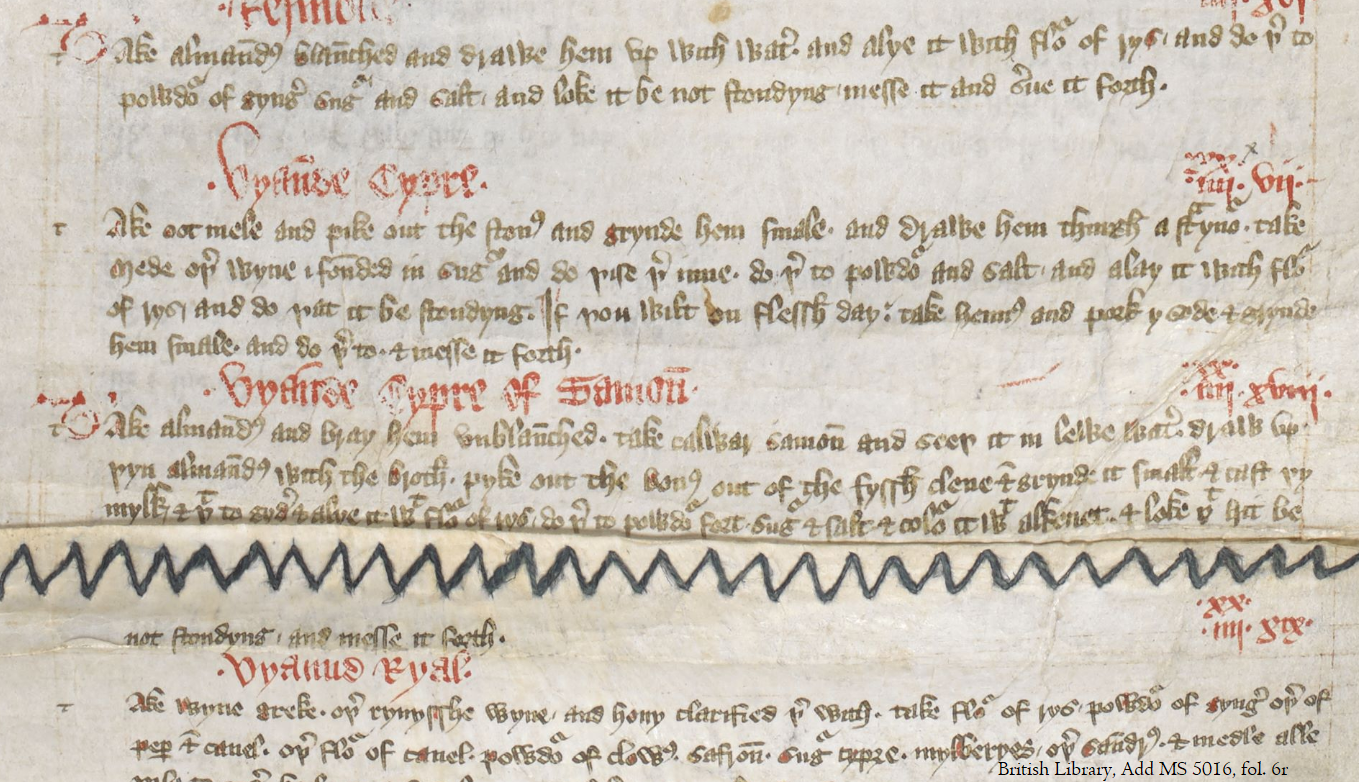 Take almand blanched and drawe hem vp with wat and alye it with flo of rys, and do þ to
powdo of gyng sug and salt, and loke it be not stondyng, messe it and sue it forth.
Vyaunde Cypre.
xx
iiii. vii.
Take oot mele and pike out the ston and grynde hem smale. and drawe hem thurgh a styno. take
mede oþ wyne ifonded in sug and do þise þ inne. do þ to powdo and salt, and alay it with flo
of rys, and do þat it be stondyng. If þou wilt on flessh day: take henn and pork y sode & grynde
hem smale. and do þ to. & messe it forth.
Vyaunde Cypre of Samoun
xx
iiii. xviii.
Take almand and bray hem vnblanched. take calwar samoun and seeþ it in lewe wat. drawe vp
þyn almand with the broth. pyke out the bon out of the fyssh clene & grynde it smale & cast þy
mylk & þ to gyd & alye it wt flo of rys, do þ to powdo fort, sug & salt & colo it wt alkenet. & loke þt hit be
xx.
iiii. xix.
not stondyng, and messe it forth.
Vyaund Ryal.
Take wyne greke. oþ rynysshe wyne and hony clarified þ with. take flo of rys powdo of gyng oþ of
pep & canel. oþ flo of canel. powdo of clow. safron. sug cypre. mylberyes, oþ saundr. & medle alle
British Library, Add MS 5016, fol. 6r